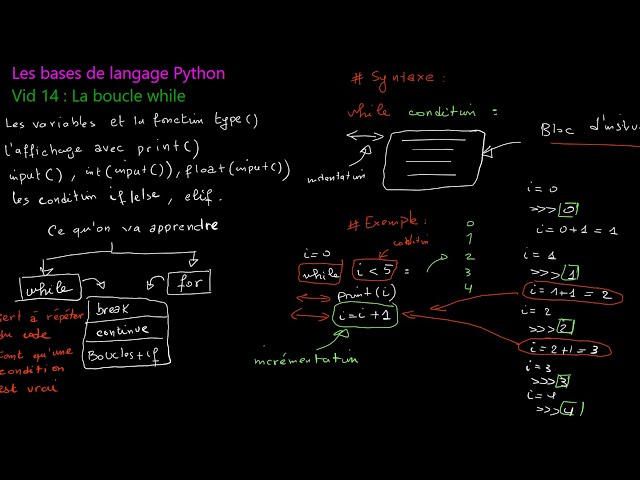 Les bases de langage Python
Vid 14 : La boucle while
Les variables et la fonction type()
l'affichage avec print()
input(), int(input()), float(input())
les condition if/else, elif.
Ce qu'on va apprendre
while
for
break
continue
Boucles + if
sert à répéter
du code
tant qu'une
condition
est vrai
# Syntaxe :
while condition :
indentation
Bloc d'instru
# Exemple :
condition
i=0
while i < 5 :
print(i)
i=i+1
incrémentation
0
1
2
3
4
i = 0
>>> 0
i = 0+1 = 1
i = 1
>>> 1
i = 1+1 = 2
i = 2
>>> 2
i = 2+1 = 3
i = 3
>>> 3
i = 4
>>> 4